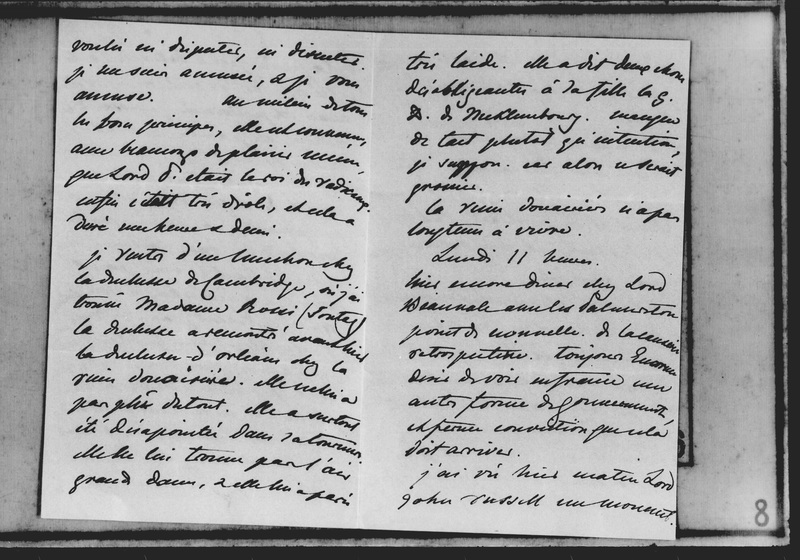 voulu ni disputer, ni discuter.
je me suis amusée, & je vous
amuse. au milieu de tous
les bons principes, elle est convenue,
avec beaucoup de plaisir même,
que Lord P. était le roi des radicaux.
enfin c'était très drôle, et cela a
duré une heure & demi.
je rentre d'un luncheon chez
la duchesse de Cambridge, où j'ai
trouvé Madame Rossi (Sontag)
la duchesse a rencontré avant hier
la duchesse d'orléans chez la
reine douairière. Elle ne lui a
pas plu du tout. Elle a surtout
été désapointée dans sa tournure
elle ne lui trouve pas l'air
grande dame, & elle lui a paru
très laide. elle a dit deux choses
désobligeantes à sa fille la G.
D. de Mecklembourg. manque
de tact plutôt qu'intention,
je suppose. car alors ce serait
grossier.
la reine douairière n'a pas
longtems à vivre.
Lundi 11 heures.
hier encore diner chez Lord
Beauvale avec les Palmerston
point de nouvelle. de la causerie
rétrospective. toujours Enorme
désir de voir en france une
autre forme de gouvernement
et ferme conviction que cela
doit arriver.
j'ai vu hier matin Lord
John russell un moment.
8